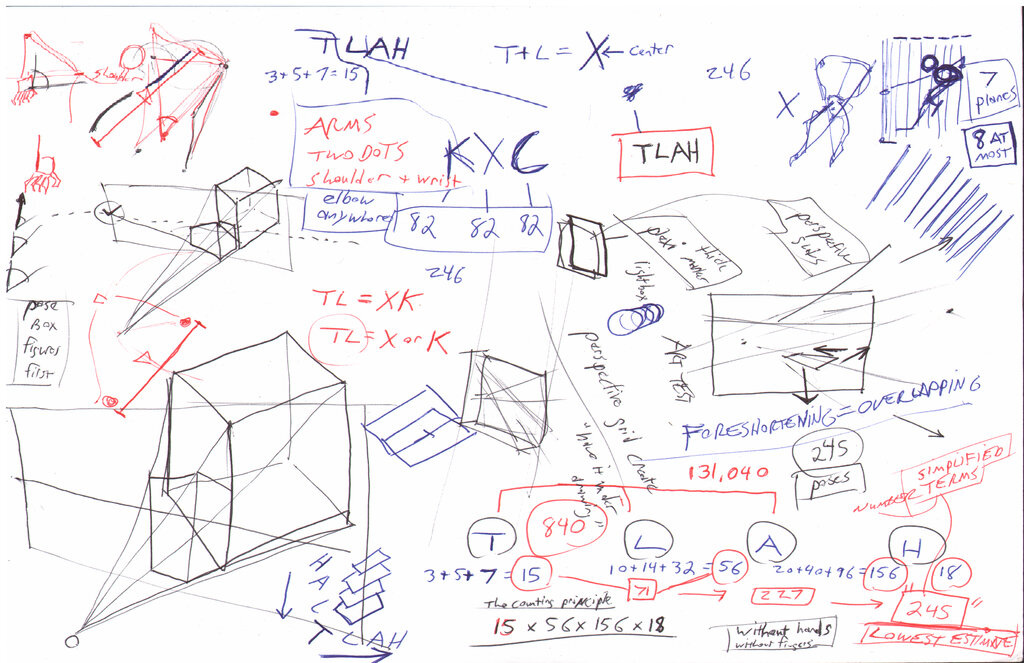 TLAH
3+5+7=15
T+L = X ← center
246
shoulder
ARMS
TWO DOTS
shoulder + wrist
elbow
anywhere
K X C
82 82 82
246
TLAH
X
7
planes
8 AT
MOST
perspective
lightbox
TL = XK
TL = X or K
pose
Box
figures
first
perspective grid create
"have it under
drawing"
ART TEST
FORESHORTENING = OVERLAPPING
245
poses
131,040
SIMPLIFIED
TERMS
NUMBER
840
T L A H
3+5+7=15
10+14+32=56
20+40+96=156
18
71
227
245"
The counting principle
15 x 56 x 156 x 18
without hands
without fingers
LOWEST ESTIMATE
HALT
TLAH